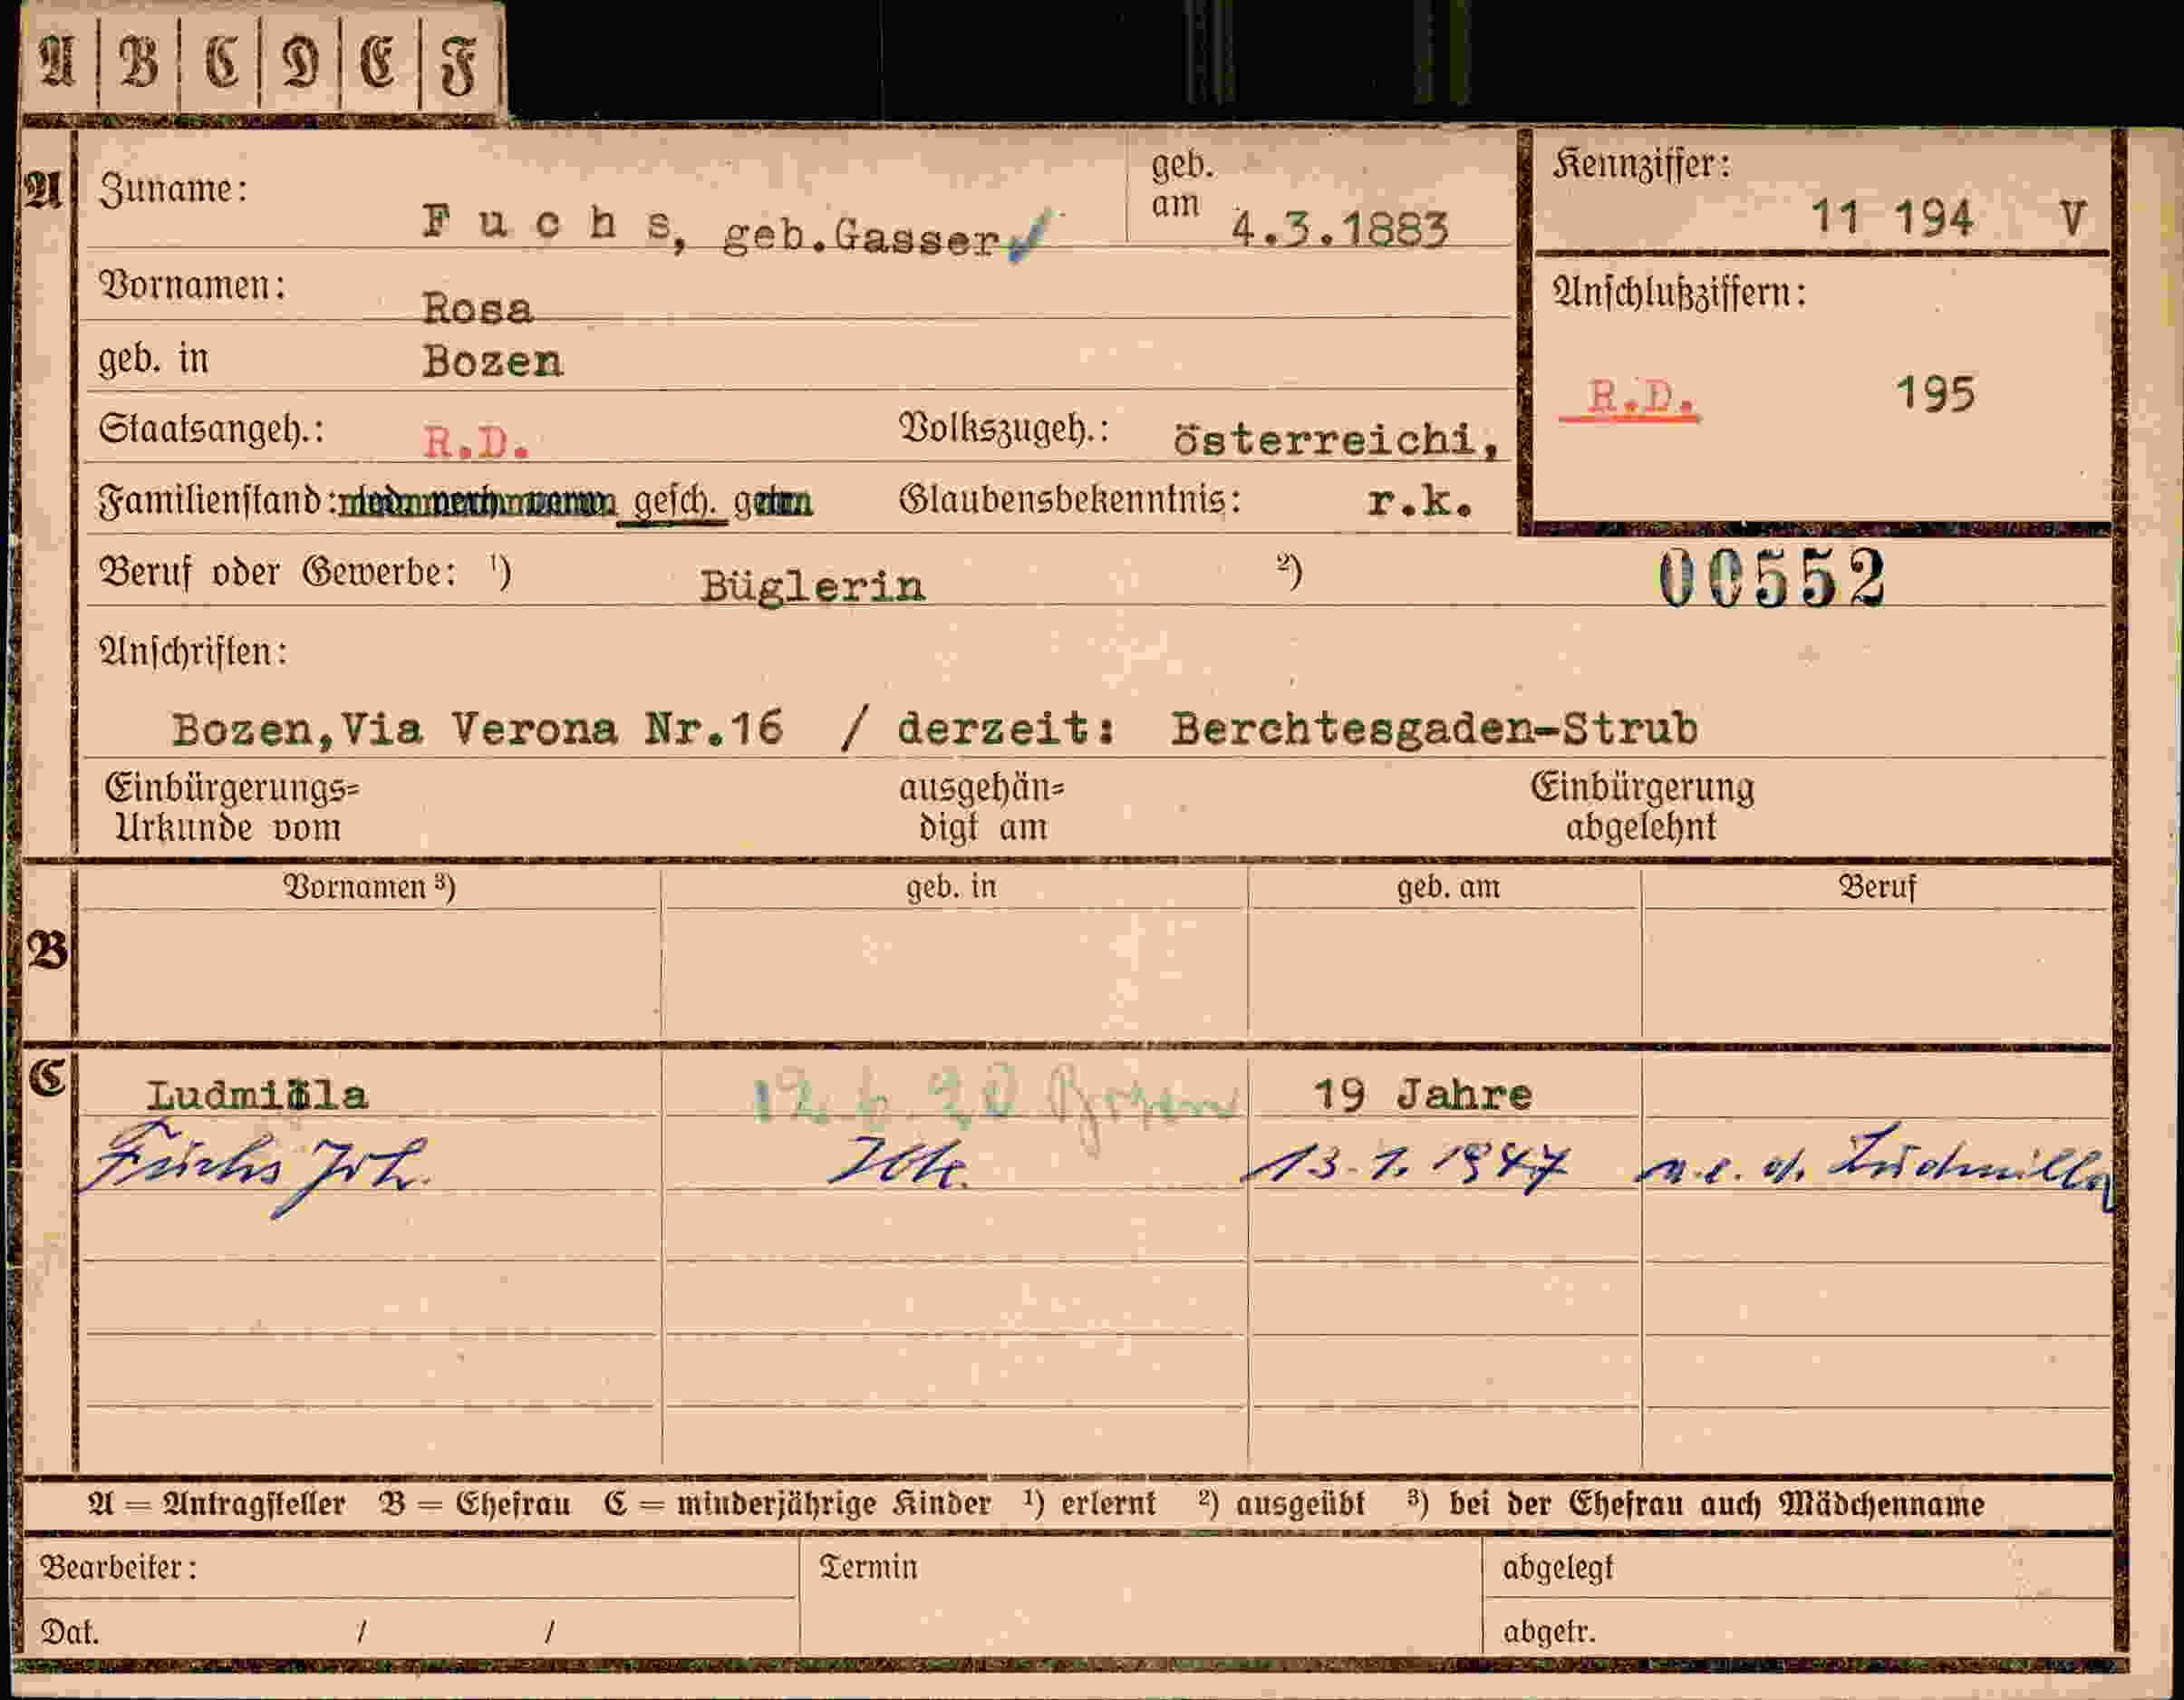 A B C D E F
A Zuname: Fuchs, geb.Gasser geb. am 4.3.1883 Kennziffer: 11 194 V
Vornamen: Rosa Anschlußziffern:
geb. in Bozen R.D. 195
Staatsangeh.: R.D. Volkszugeh.: österreichi,
Familienstand: gesch. Glaubensbekenntnis: r.k.
Beruf oder Gewerbe: ¹) Büglerin ²) 00552
Anschriften:
Bozen,Via Verona Nr.16 / derzeit: Berchtesgaden-Strub
Einbürgerungs= ausgehän= Einbürgerung
Urkunde vom digt am abgelehnt
Vornamen ³) geb. in geb. am Beruf
B
C Ludmilla 12.6.20 Bozen 19 Jahre
Fuchs Joh. Ibk. 13.1.1947 u.e. d. Ludmilla
A = Antragsteller B = Ehefrau C = minderjährige Kinder ¹) erlernt ²) ausgeübt ³) bei der Ehefrau auch Mädchenname
Bearbeiter: Termin abgelegt
Dat. / / abgetr.